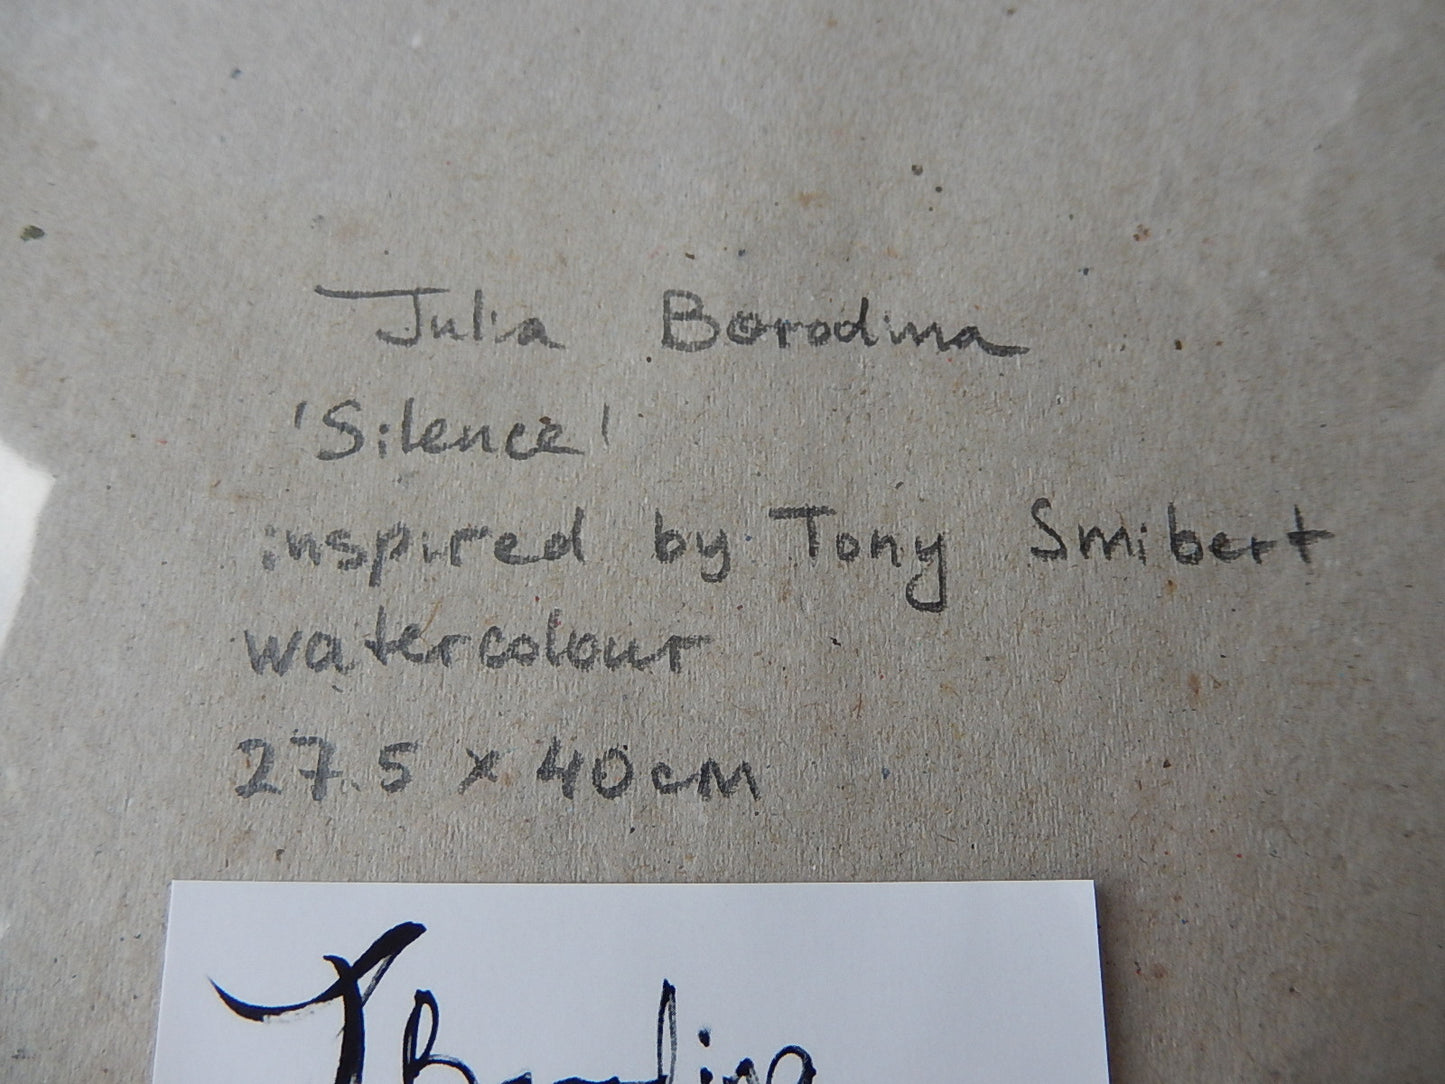 Julia Borodina
'Silence'
inspired by Tony Smibert
watercolour
27.5 x 40cm
J Borodina